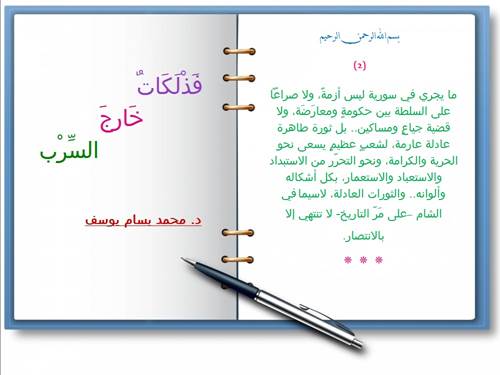 بسم الله الرحمن الرحيم
(2)
ما يجري في سورية ليس أزمةً، ولا صراعًا
على السلطة بين حكومةٍ ومعارَضَة، ولا
قضية جياع ومساكين.. بل ثورة طاهرة
عادلة عارمة، لشعبٍ عظيمٍ يسعى نحو
الحرية والكرامة، ونحو التحرّر من الاستبداد
والاستعباد والاستعمار، بكل أشكاله
وألوانه.. والثورات العادلة، لاسيما في
الشام –على مَرّ التاريخ- لا تنتهي إلا
بالانتصار.
فَذْلَكَاتٌ
خَارِجَ
السِّرْب
د. محمد بسام يوسف